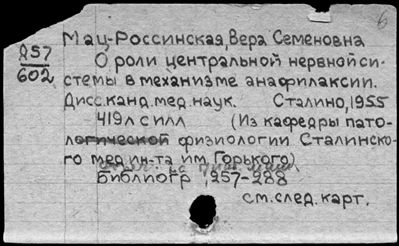 6
Д57
602
Мац-Россинская, Вера Семеновна
О роли центральной нервной си-
стемы в механизме анафилаксии.
Дисс. канд. мед. наук. Сталино, 1955
419л с илл (Из кафедры пато-
логической физиологии Сталинско-
го мед ин-та им. Горького)
Библиогр., 257-288
см. след. карт.